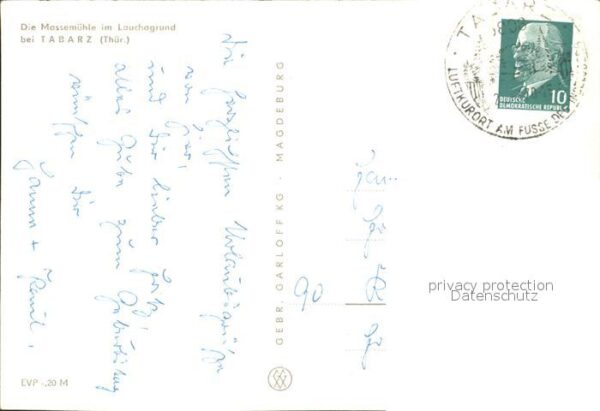 Die Massemühle im Lauchagrund
bei TABARZ (Thür.)
Die herzlichsten Urlaubsgrüße
von hier,
und Dir lieber
alles Gute zum Geburtstag
wünschen Dir
Hanna +
EVP -,20 M
GEBR. GARLOFF KG · MAGDEBURG
TABARZ
LUFTKURORT AM FUSSE DES
DEUTSCHE
DEMOKRATISCHE REPUBLIK
10
90
privacy protection
Datenschutz